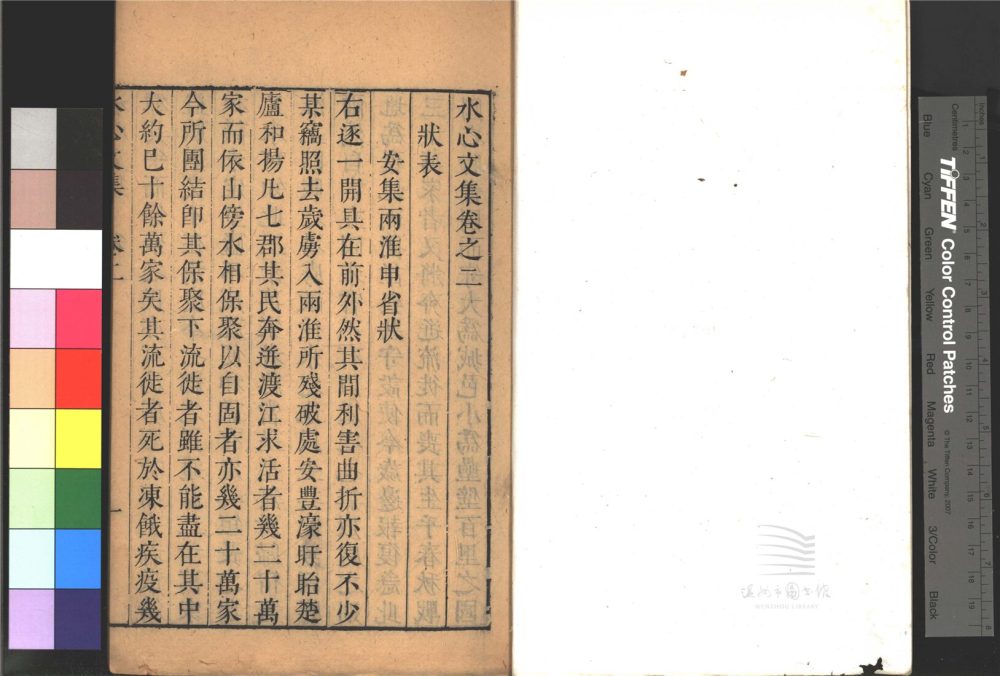 水心文集卷之二
狀表
安集兩淮申省狀
右逐一開具在前外然其間利害曲折亦復不少
某竊照去歲虜入兩淮所殘破處安豐濠盱眙楚
廬和揚凡七郡其民奔迸渡江求活者幾二十萬
家而依山傍水相保聚以自固者亦幾二十萬家
今所團結卽其保聚下流徙者雖不能盡在其中
大約已十餘萬家矣其流徙者死於凍餓疾疫幾
水心文集 卷二
一
溫州市圖書館
WENZHOU LIBRARY
Inches
Centimetres
TIFFEN Color Control Patches
© The Tiffen Company, 2007
Blue
Cyan
Green
Yellow
Red
Magenta
White
3/Color
Black